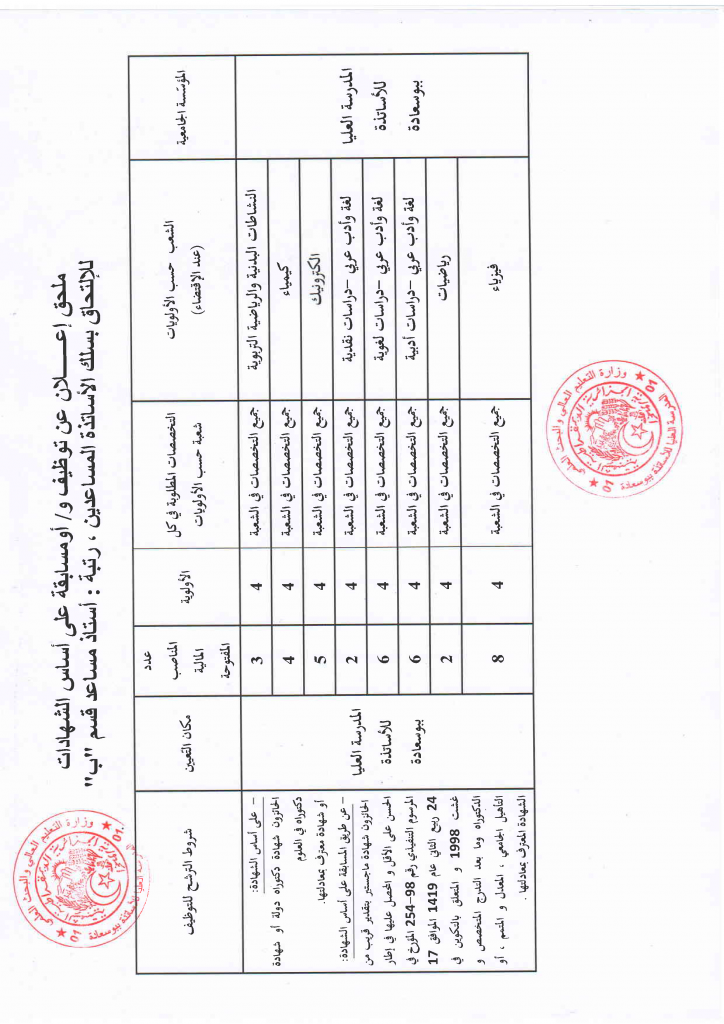 ملحق إعـــــلان عن توظيف و/أومسابقة على أساس الشهادات
للإلتحاق بسلك الأساتذة المساعدين ، رتبة : أستاذ مساعد قسم "ب"
المؤسّسة الجامعية
الشعب حسب الأولويات
(عند الاقتضاء)
التخصصات المطلوبة في كل
شعبة حسب الأولويات
الأولوية
عدد
المناصب
المالية
المفتوحة
مكان التعيين
شروط الترشح للتوظيف
المدرسة العليا
للأساتذة
ببوسعادة
النشاطات البدنية والرياضية التربوية
جميع التخصصات في الشعبة
4
3
كيمياء
جميع التخصصات في الشعبة
4
4
الكترونيك
جميع التخصصات في الشعبة
4
5
لغة وأدب عربي –دراسات نقدية
جميع التخصصات في الشعبة
4
2
لغة وأدب عربي –دراسات لغوية
جميع التخصصات في الشعبة
4
6
لغة وأدب عربي –دراسات أدبية
جميع التخصصات في الشعبة
4
6
رياضيات
جميع التخصصات في الشعبة
4
2
فيزياء
جميع التخصصات في الشعبة
4
8
المدرسة العليا
للأساتذة
ببوسعادة
– على أساس الشهادة:
الحائزون شهادة دكتوراه دولة أو شهادة
دكتوراه في العلوم
أو شهادة معترف بمعادلتها.
– عن طريق المسابقة على أساس الشهادة:
الحائزون شهادة ماجستير بتقدير قريب من
الحسن على الأقل و المحصل عليها في إطار
المرسوم التنفيذي رقم 98–254 المؤرخ في
24 ربيع الثاني عام 1419 الموافق 17
غشت 1998 و المتعلق بالتكوين في
الدكتوراه وما بعد التدرج المتخصص و
التأهيل الجامعي ، المعدل و المتمم ، أو
الشهادة المعترف بمعادلتها .
وزارة التعليم العالي و البحث العلمي
المدرسة العليا للأساتذة ببوسعادة
01
الجمهورية الجزائرية الديمقراطية الشعبية
وزارة التعليم العالي و البحث العلمي
01